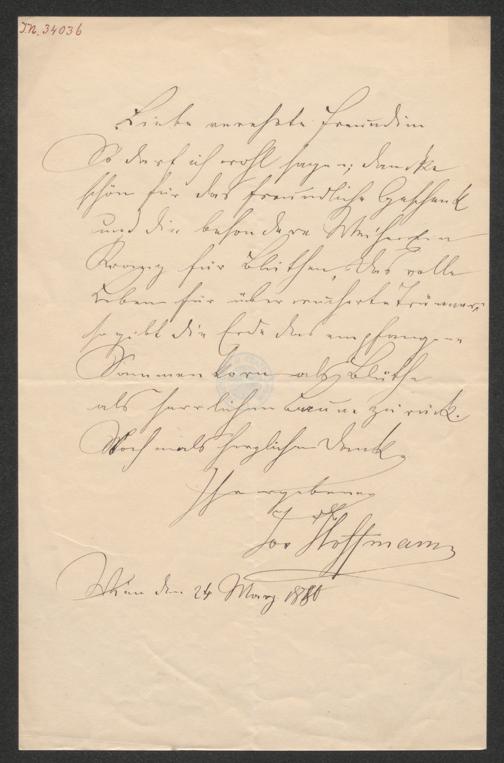 J.N. 34036
Liebe verehrte Freundin
So darf ich wohl sagen; danke
schön für das freundliche Geschenk
und die besondere
für Blüthen, das volle
Leben für
so gibt die Erde das empfangene
Saamenkorn als Blüthe
als herrlichen Baum zurück.
Nochmals herzlichen Dank
Ihr ergebener
Jos Hoffmann
Wien den 24 März 1880